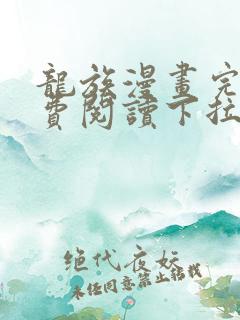 龍族漫畫完
費閱讀下拉
绝代夜妖
未经同意禁止转载